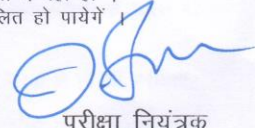 लित हो पायेगें ।
परीक्षा नियंत्रक